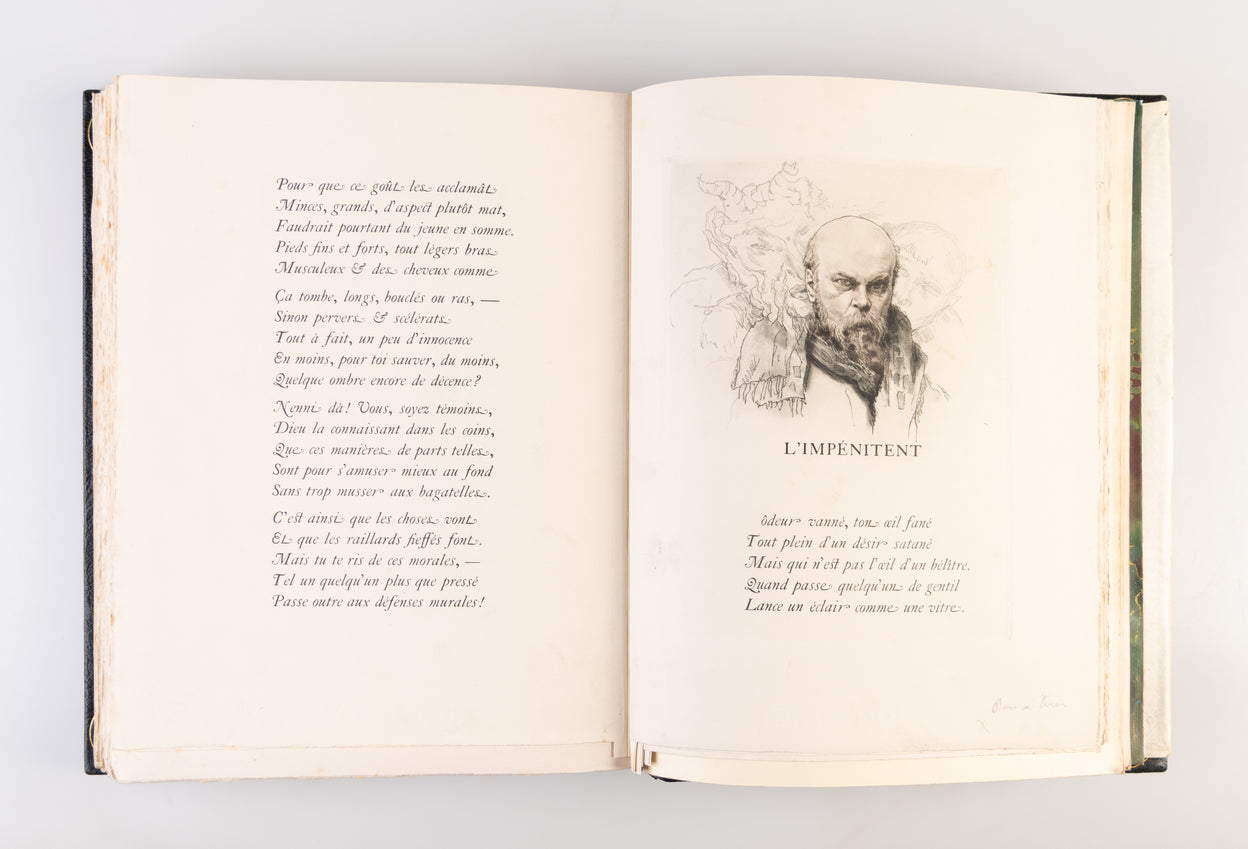 Pour que ce goût les acclamât
Minces, grands, d'aspect plutôt mat,
Faudrait pourtant du jeune en somme.
Pieds fins et forts, tout légers bras
Musculeux & des cheveux comme
Ça tombe, longs, bouclés ou ras, —
Sinon pervers & scélérats
Tout à fait, un peu d'innocence
En moins, pour toi sauver, du moins,
Quelque ombre encore de décence?
Nenni dà! Vous, soyez témoins,
Dieu la connaissant dans les coins,
Que ces manières de parts telles,
Sont pour s'amuser mieux au fond
Sans trop musser aux bagatelles.
C'est ainsi que les choses vont
Et que les raillards fieffés font.
Mais tu te ris de ces morales, —
Tel un quelqu'un plus que pressé
Passe outre aux défenses murales!
L'IMPÉNITENT
ôdeur vanné, ton œil fané
Tout plein d'un désir satané
Mais qui n'est pas l'œil d'un bélître.
Quand passe quelqu'un de gentil
Lance un éclair comme une vitre.